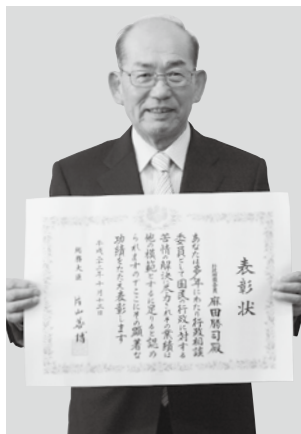 表彰状
行政相談委員
麻田勝司殿
あなたは多年にわたり行政相談
委員として国民の行政に対する
苦情の解決に尽力されその業績は
他の模範とするに足りると認め
られますのでここにその顕著な
功績をたたえ表彰します
平成二十二年十月十二日
総務大臣 片山善博